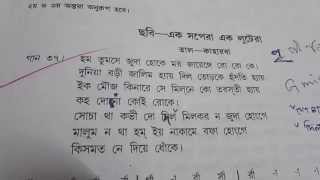 ২য় ও ৩য় অন্তরা অনুরূপ হবে।
ছবি—এক সপেরা এক লুটেরা
তাল—কাহারবা
গান ৩৭।
হম তুমসে জুদা হোকে মর জায়েঙ্গে রো রো কে।
দুনিয়া বড়ী জালিম হ্যায় দিল তোড়কে হঁসতি হ্যায়
ইক মৌজ কিনারে সে মিলনে কো তরসতী হ্যায়
কহ দো কোই রোকে।
সোচা থা কভী দো দিল মিলকর ন জুদা হোংগে
মালুম ন থা হম্ ইয় নাকামে বফা হোংগে
কিসমত নে দিয়ে ধোঁকে।